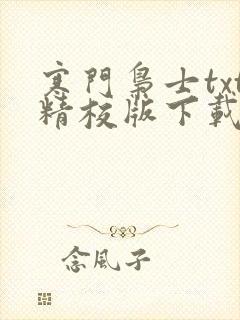 寒門梟士txt
精校版下載
念風子